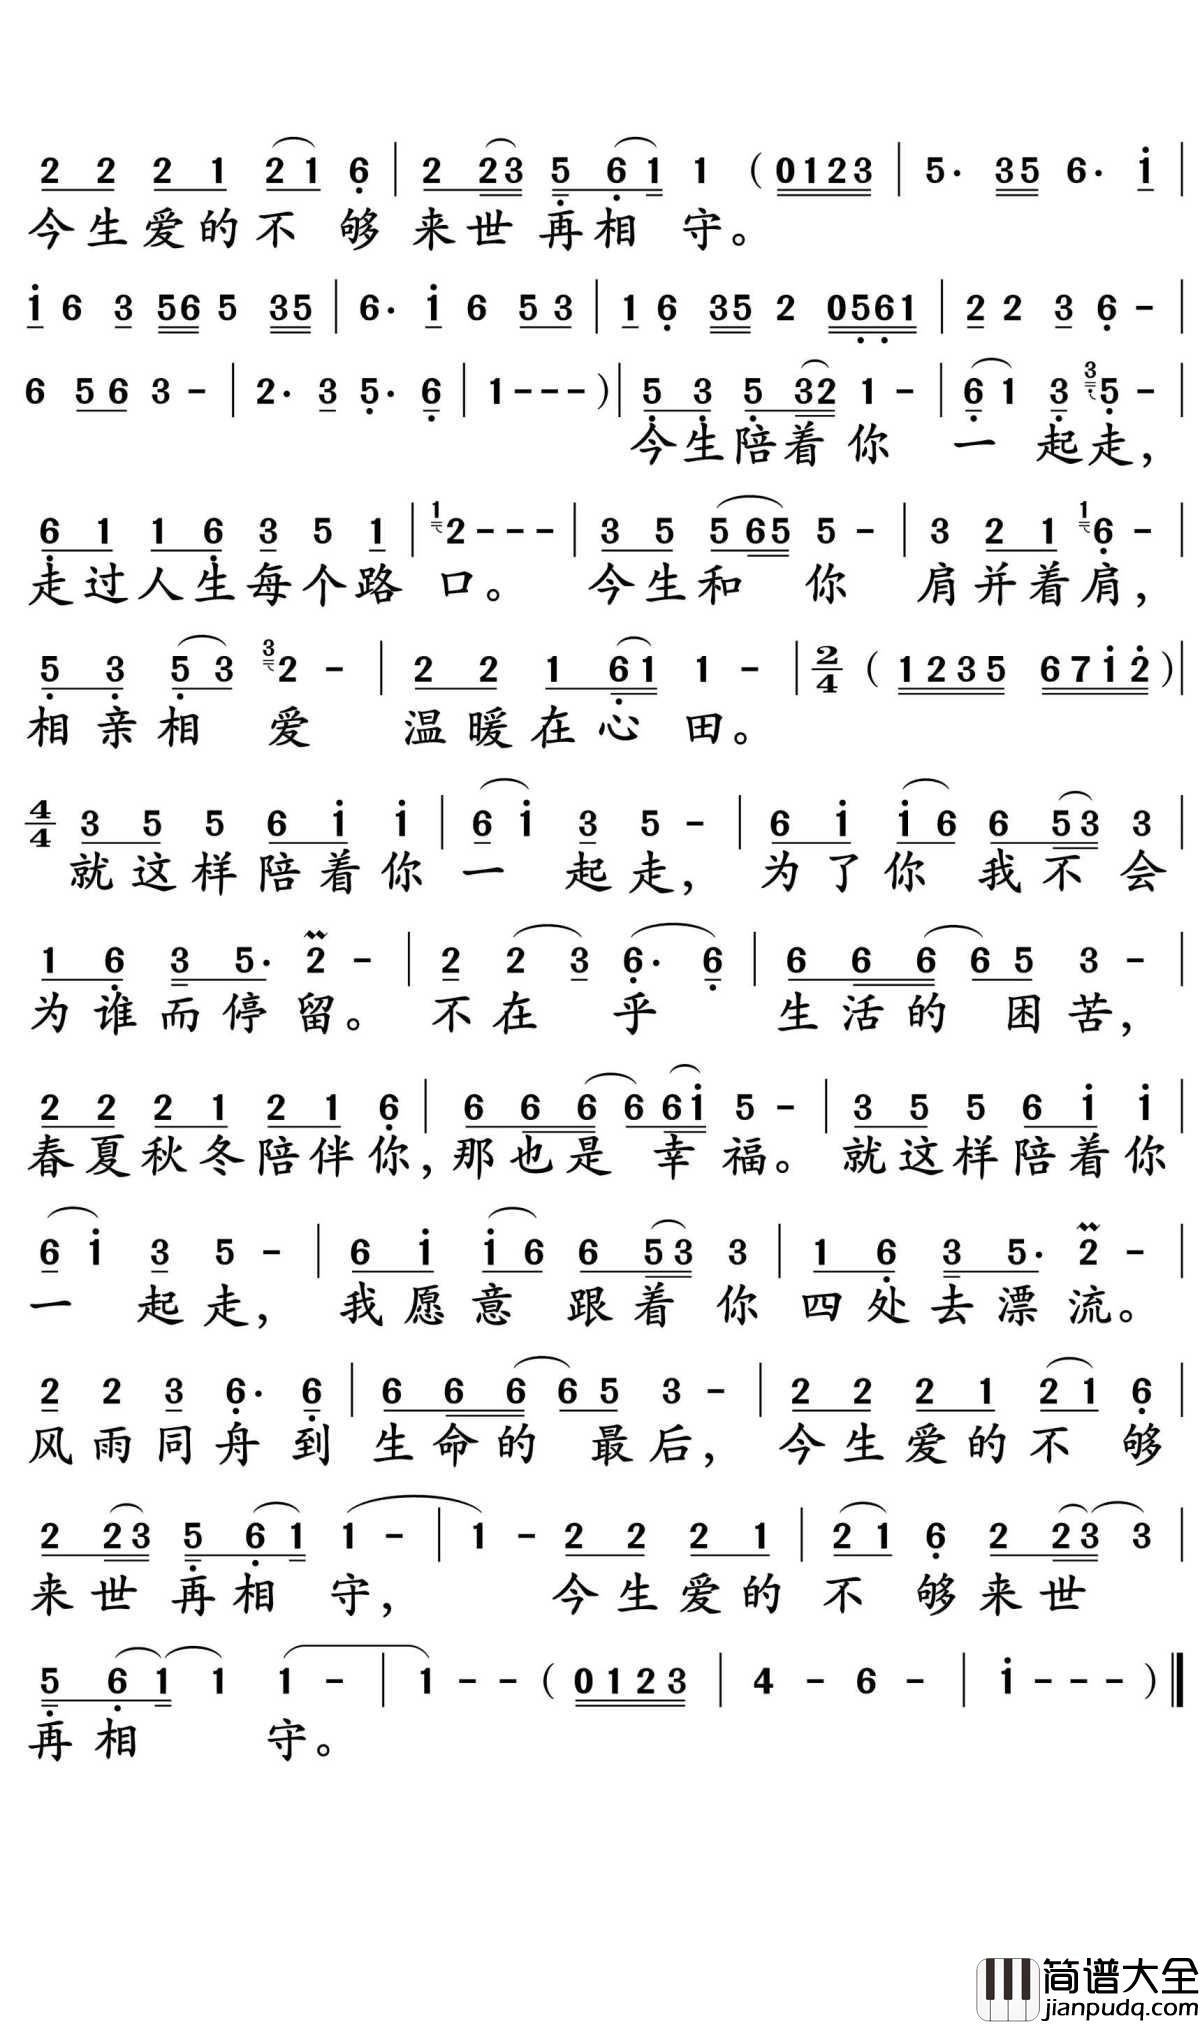 2 2 2 1 2 1 6 | 2 2 3 5 6 1 1 ( 0 1 2 3 | 5· 3 5 6· 1 |
今生爱的不够来世再相守。
1 6 3 5 6 5 3 5 | 6· 1 6 5 3 | 1 6 3 5 2 0 5 6 1 | 2 2 3 6 - |
6 5 6 3 - | 2· 3 5· 6 | 1 - - - ) | 5 3 5 3 2 1 - | 6 1 3 3 5 - |
今生陪着你一起走，
6 1 1 6 3 5 1 | 1 2 - - - | 3 5 5 6 5 5 - | 3 2 1 1 6 - |
走过人生每个路口。今生和你肩并着肩，
5 3 5 3 3 2 - | 2 2 1 6 1 1 - | 2/4 ( 1 2 3 5 6 7 1 2 ) |
相亲相爱温暖在心田。
4/4 3 5 5 6 1 1 | 6 1 3 5 - | 6 1 1 6 6 5 3 3 |
就这样陪着你一起走，为了你我不会
1 6 3 5· 2 - | 2 2 3 6· 6 | 6 6 6 6 5 3 - |
为谁而停留。不在乎生活的困苦，
2 2 2 1 2 1 6 | 6 6 6 6 6 1 5 - | 3 5 5 6 1 1 |
春夏秋冬陪伴你，那也是幸福。就这样陪着你
6 1 3 5 - | 6 1 1 6 6 5 3 3 | 1 6 3 5· 2 - |
一起走，我愿意跟着你四处去漂流。
2 2 3 6· 6 | 6 6 6 6 5 3 - | 2 2 2 1 2 1 6 |
风雨同舟到生命的最后，今生爱的不够
2 2 3 5 6 1 1 - | 1 - 2 2 2 1 | 2 1 6 2 2 3 3 |
来世再相守，今生爱的不够来世
5 6 1 1 1 - | 1 - - ( 0 1 2 3 | 4 - 6 - | 1 - - - ) ‖
再相守。
简谱大全
jianpudq.com